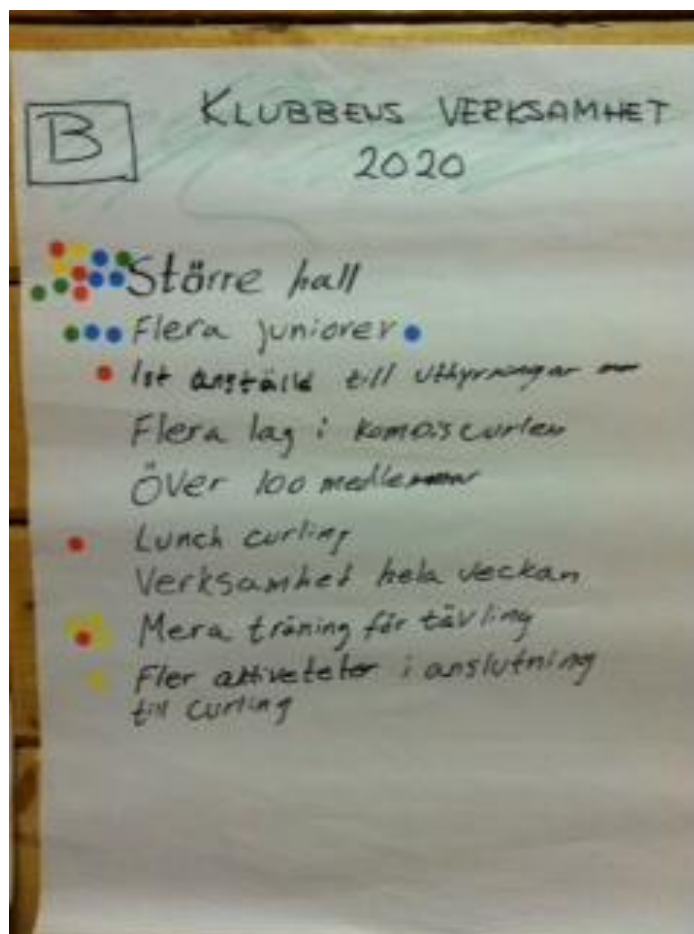 B
KLUBBENS VERKSAMHET
2020
Större hall
Flera juniorer
1st anställd till uthyrningar
Flera lag i kompiscurlen
Över 100 medlemmar
Lunch curling
Verksamhet hela veckan
Mera träning för tävling
Fler aktiveteter i anslutning
till curling